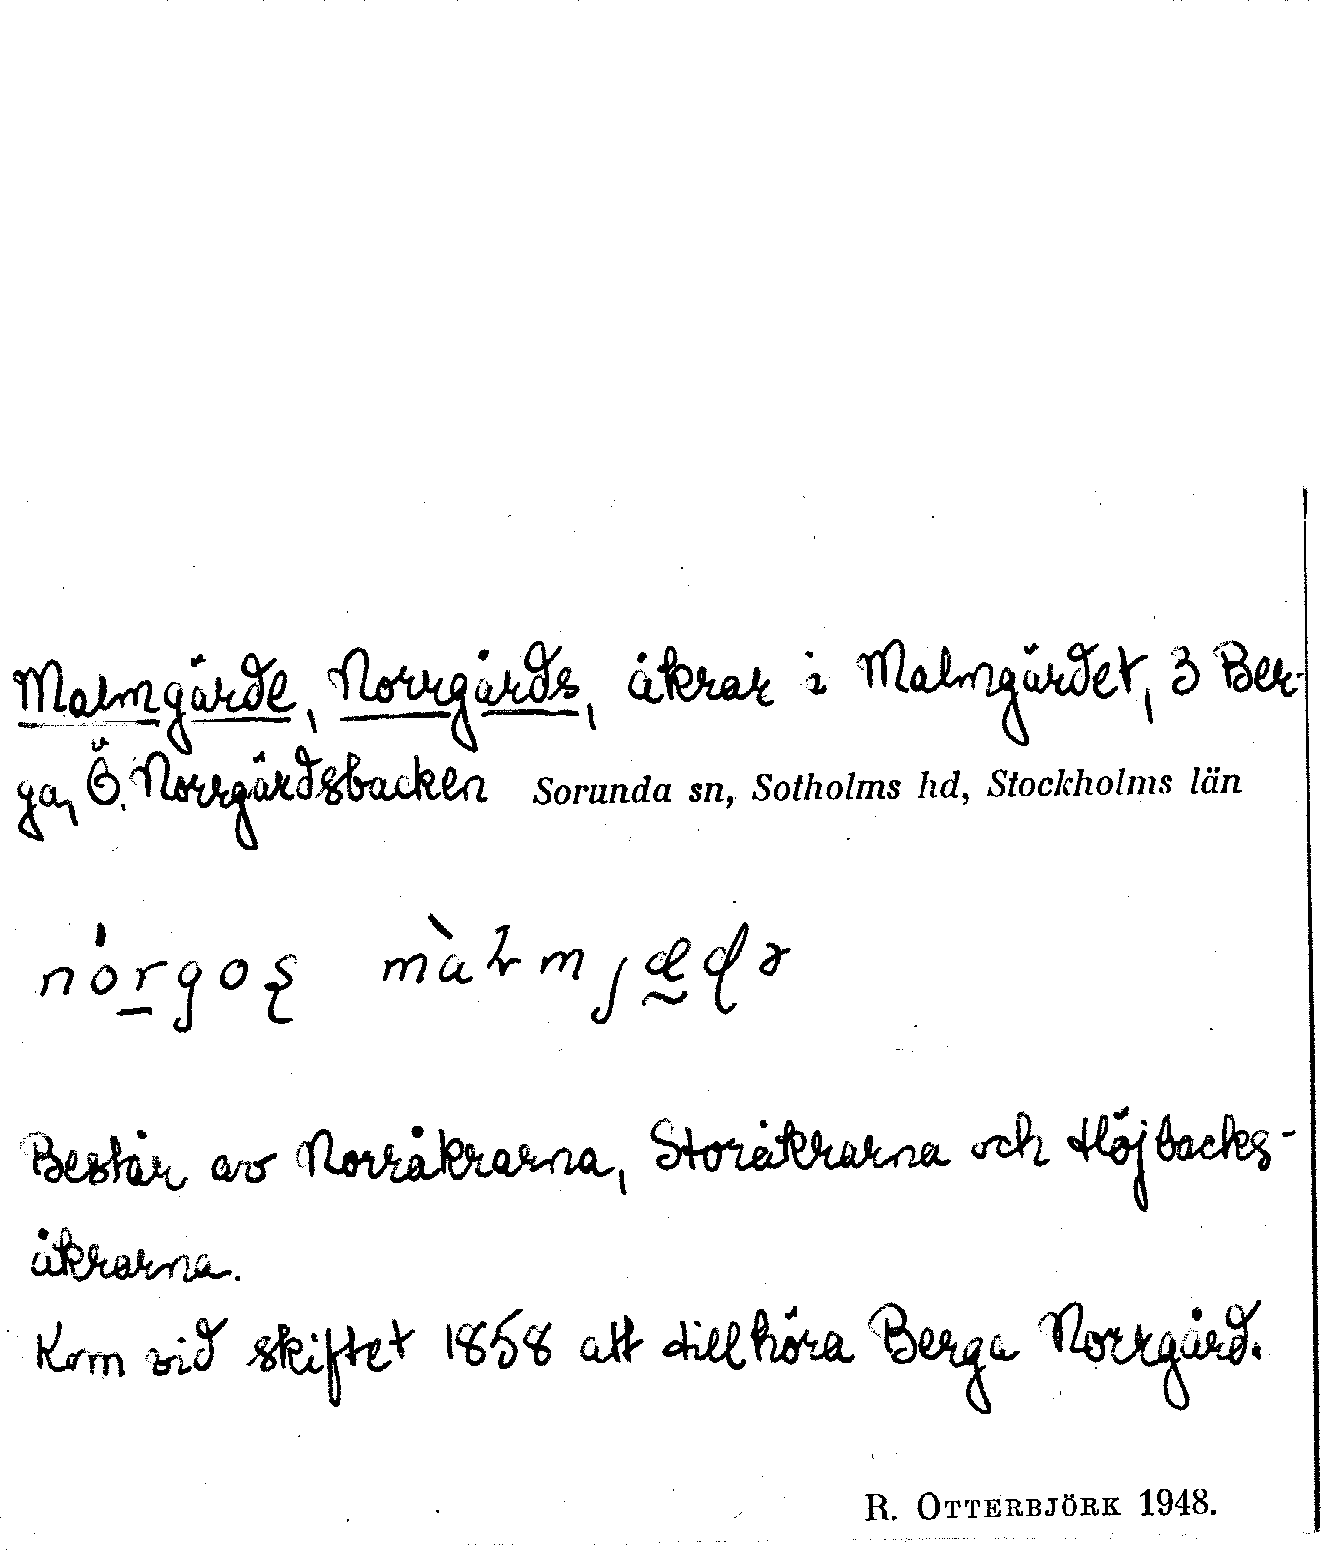 Malmgärde, Norrgårds, åkrar i Malmgärdet, 3 Ber-
ga, Ö. Norrgärdsbacken Sorunda sn, Sotholms hd, Stockholms län
Består av Norråkrarna, Storåkrarna och Höjbacks-
åkrarna.
Kom vid skiftet 1858 att tillhöra Berga Norrgård.
R. OTTERBJÖRK 1948.